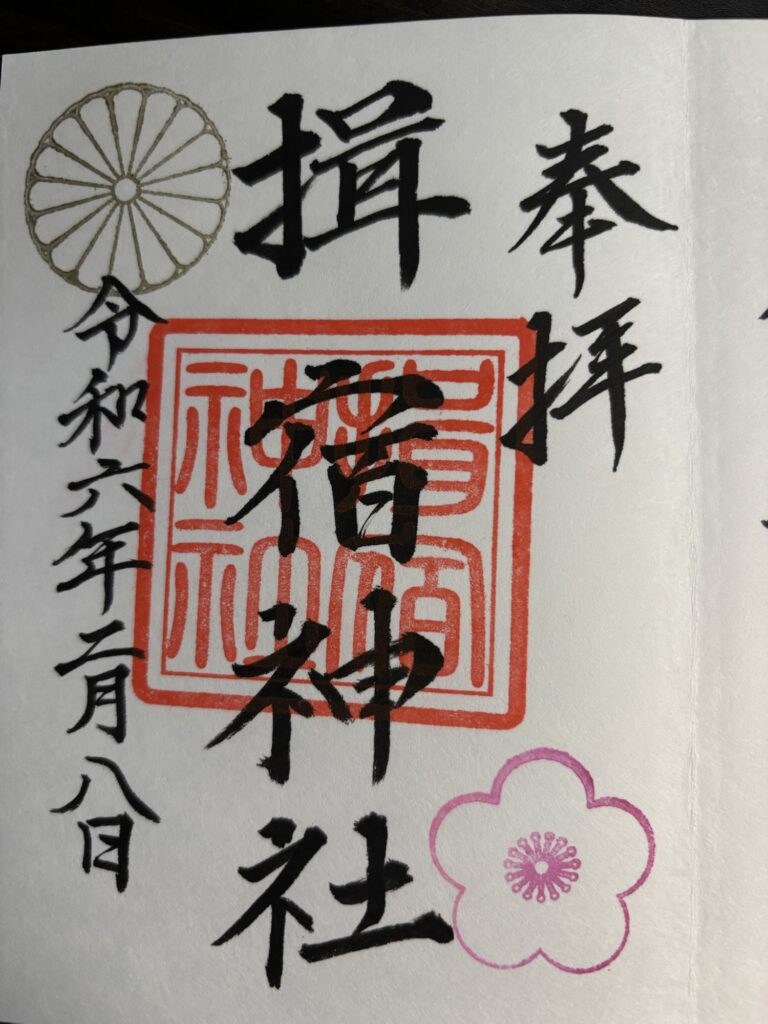 奉拝
揖宿神社
揖宿
神社
令和六年二月八日